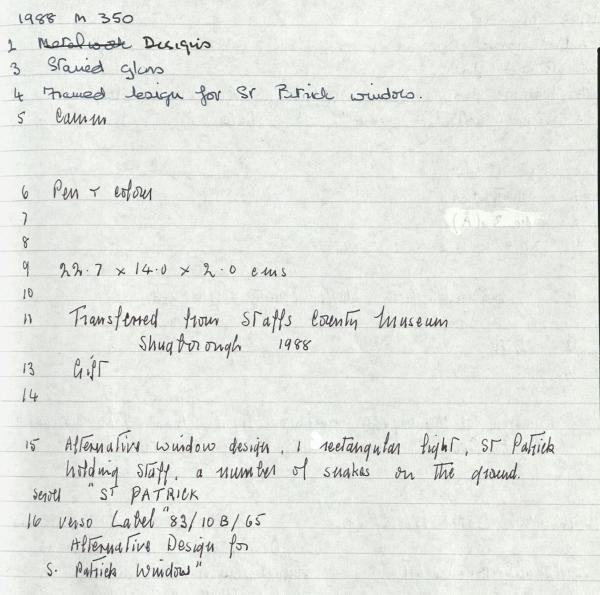 1988 M 350
1 Metalwork Designs
3 Stained glass
4 Framed design for St Patrick window.
5 Camm
6 Pen & colour
7
8
9 22.7 x 14.0 x 2.0 cms
10
11 Transferred from Staffs County Museum
Shugborough 1988
13 Gift
14
15 Alternative window design, 1 rectangular light, St Patrick
holding staff, a number of snakes on the ground.
scroll "ST PATRICK
16 verso Label "83/10B/65
Alternative Design for
S. Patrick Window"